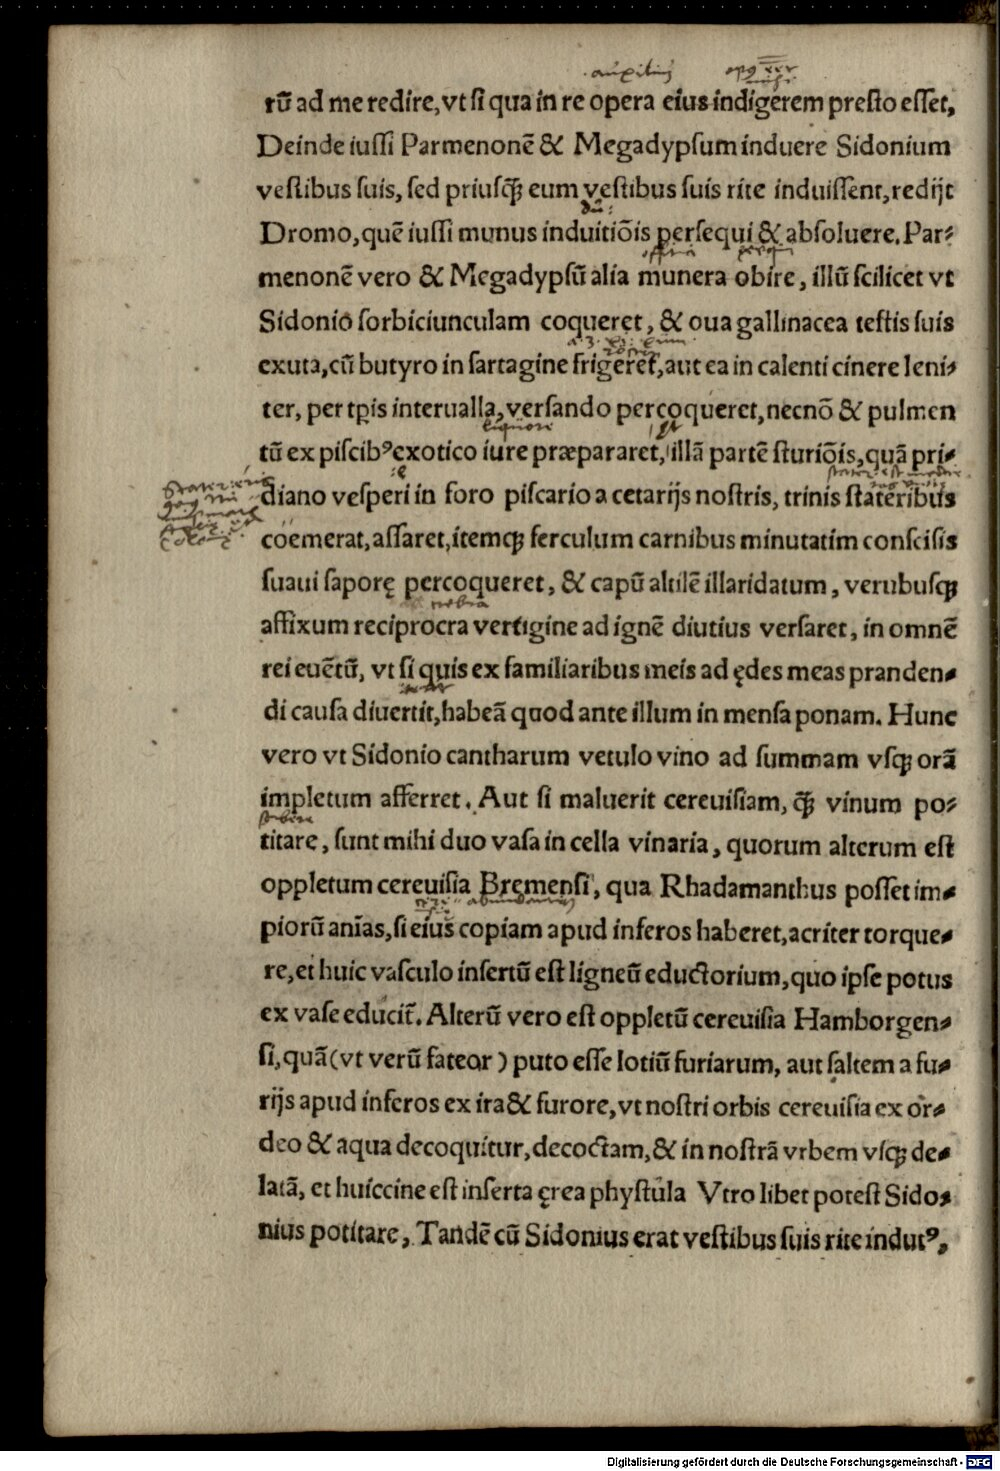 auxiliũ
rũ ad me redire, vt si qua in re opera eius indigerem presto esset,
Deinde iussi Parmenonē & Megadypsum induere Sidonium
vestibus suis, sed priusꝙ̃ eum vestibus suis rite induissent, redijt
Dromo, quē iussi munus induitiõis persequi & absoluere. Par⸗
menonē vero & Megadypsũ alia munera obire, illũ scilicet vt
Sidonio sorbiciunculam coqueret, & oua gallinacea testis suis
exuta, cũ butyro in sartagine frigeret, aut ea in calenti cinere leni⸗
ter, per tꝑis interualla, versando percoqueret, necnō & pulmen
tũ ex piscibꝰ exotico iure præpararet, illā partē sturiõis, quā pri⸗
diano vesperi in foro piscario a cetarijs nostris, trinis stateribus
coemerat, assaret, itemqꝫ ferculum carnibus minutatim conscisis
suaui saporę percoqueret, & capũ altilē illaridatum, verubusqꝫ
affixum reciprocra vertigine ad ignē diutius versaret, in omnē
rei euētũ, vt si quis ex familiaribus meis ad ędes meas pranden⸗
di causa diuertit, habeā quod ante illum in mensa ponam. Hunc
vero vt Sidonio cantharum vetulo vino ad summam vsqꝫ orā
impletum afferret. Aut si maluerit cereuisiam, ꝙ̃ vinum po⸗
titare, sunt mihi duo vasa in cella vinaria, quorum alterum est
oppletum cereuisia Bremensi, qua Rhadamanthus posset im⸗
piorũ anīas, si eius copiam apud inferos haberet, acriter torque⸗
re, et huic vasculo insertũ est ligneũ eductorium, quo ipse potus
ex vase educit̃. Alterũ vero est oppletũ cereuisia Hamborgen⸗
si, quā (vt verũ fateor) puto esse lotiũ furiarum, aut saltem a fu⸗
rijs apud inferos ex ira & furore, vt nostri orbis cereuisia ex or⸗
deo & aqua decoquitur, decoctam, & in nostrā vrbem vsqꝫ de⸗
latā, et huiccine est inserta ęrea phystula Vtro libet potest Sido⸗
nius potitare, Tandē cũ Sidonius erat vestibus suis rite indutꝰ,
Digitalisierung gefördert durch die Deutsche Forschungsgemeinschaft - DFG